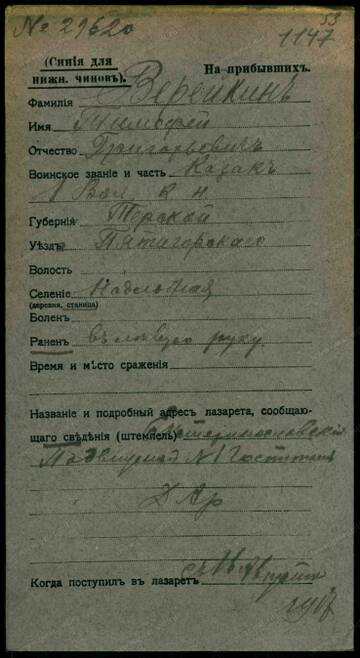 № 29620
53
1147
(Синія для
нижн. чиновъ).
На прибывшихъ.
Фамилія Верейкинъ
Имя Тимофей
Отчество Григорьевичъ
Воинское званіе и часть Казакъ
1 Вол. к п
Губернія Терской
Уѣздъ Пятигорскаго
Волость
Селеніе
(деревня, станица)
Боленъ
Раненъ въ лѣвую руку.
Время и мѣсто сраженія
Названіе и подробный адресъ лазарета, сообщаю-
щаго свѣдѣнія (штемпель)
№ 1 Госпиталь
Когда поступилъ въ лазаретъ